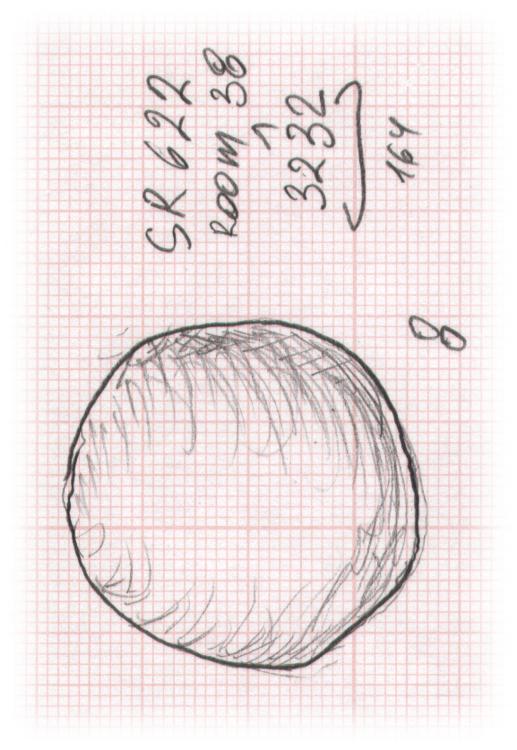 SR 622
ROOM 38
^
3232
164
8